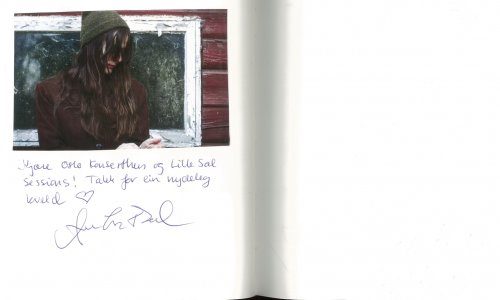 Kjære Oslo Konserthus og Lille Sal
Sessions! Takk for ein nydeleg
kveld ♡